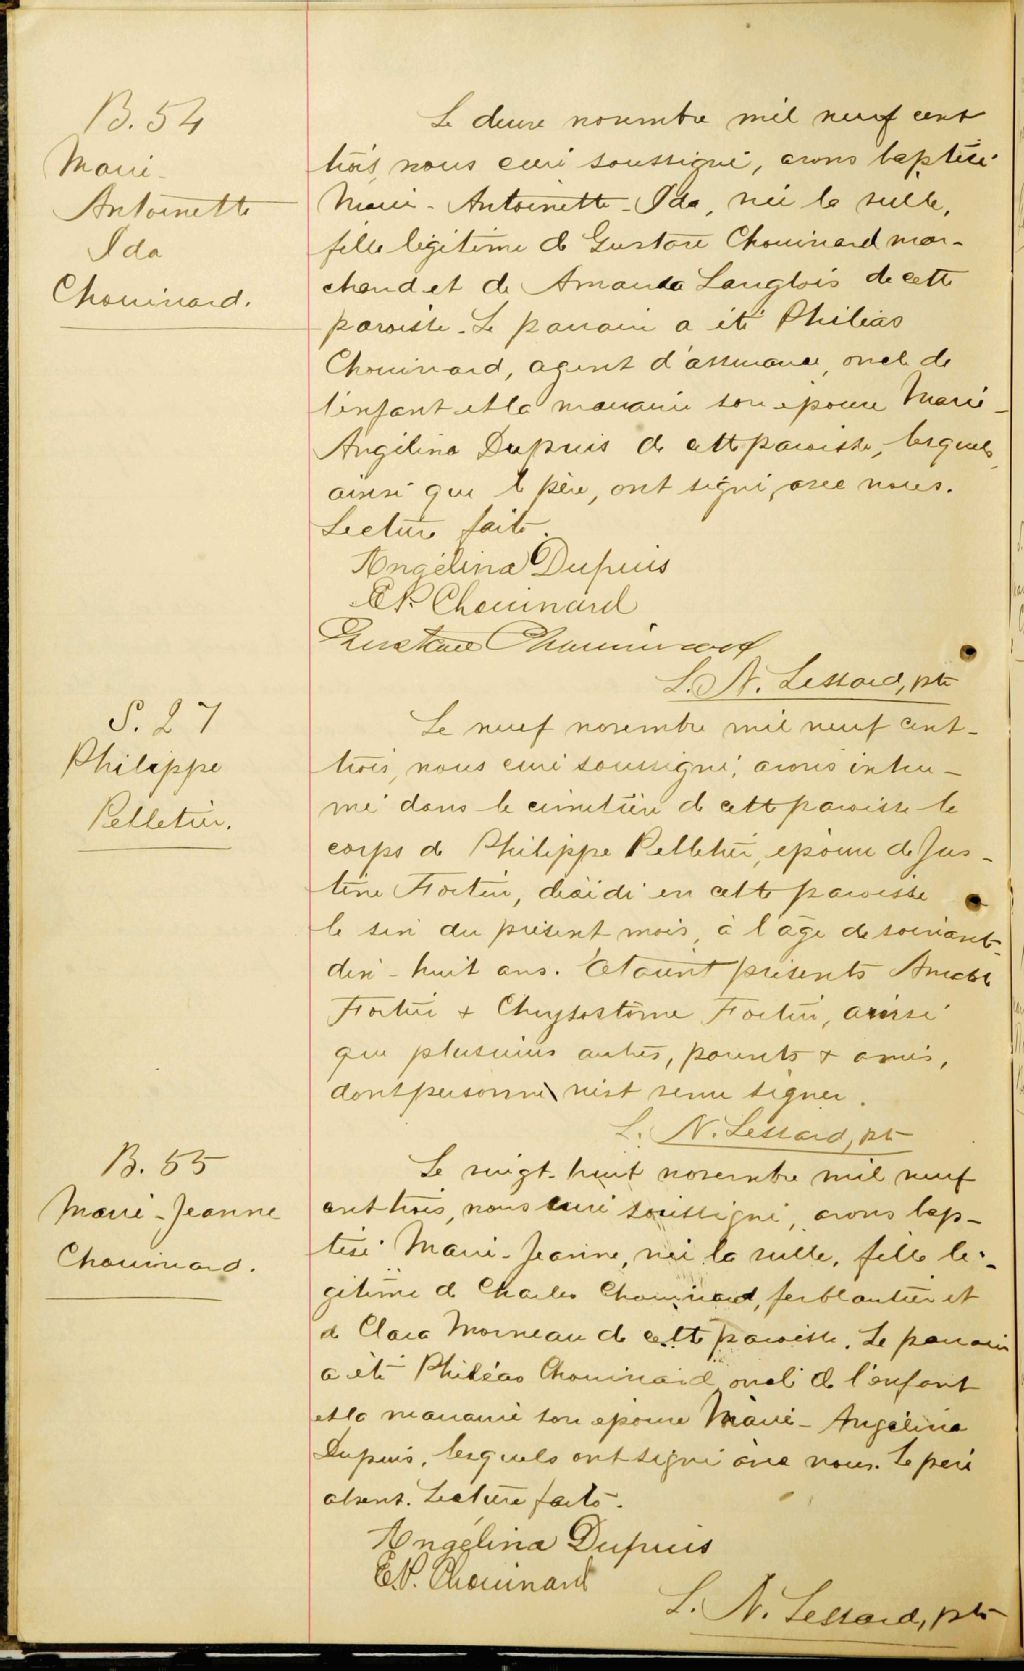 B. 54
Marie-
Antoinette
Ida
Chouinard.
Le douze novembre mil neuf cent
trois, nous curé soussigné, avons baptisé
Marie-Antoinette-Ida, née la veille,
fille légitime de Gustave Chouinard mar-
chand et de Amanda Langlois de cette
paroisse. Le parrain a été Philéas
Chouinard, agent d'assurance, oncle de
l'enfant et la marraine son épouse Marie-
Angélina Dupuis de cette paroisse, lesquels,
ainsi que le père, ont signé avec nous.
Lecture faite.
Angélina Dupuis
E.P. Chouinard
Gustave Chouinard
L. N. Lessard, ptr
S. 27
Philippe
Pelletier.
Le neuf novembre mil neuf cent-
trois, nous curé soussigné, avons inhu-
mé dans le cimetière de cette paroisse le
corps de Philippe Pelletier, époux de Jus-
tine Fortin, décédé en cette paroisse
le six du présent mois, à l'âge de soixante-
dix-huit ans. Étaient présents Amable
Fortin + Chrysostôme Fortin, ainsi
que plusieurs autres, parents + amis,
dont personne n'est venu signer.
L. N. Lessard, ptr
B. 55
Marie-Jeanne
Chouinard.
Le vingt-huit novembre mil neuf
cent trois, nous curé soussigné, avons bap-
tisé Marie-Jeanne, née la veille, fille lé-
gitime de Charles Chouinard, ferblantier et
de Clara Morneau de cette paroisse. Le parrain
a été Philéas Chouinard oncle de l'enfant
et la marraine son épouse Marie-Angélina
Dupuis, lesquels ont signé avec nous. Le père
absent. Lecture faite.
Angélina Dupuis
E.P. Chouinard
L. N. Lessard, ptr